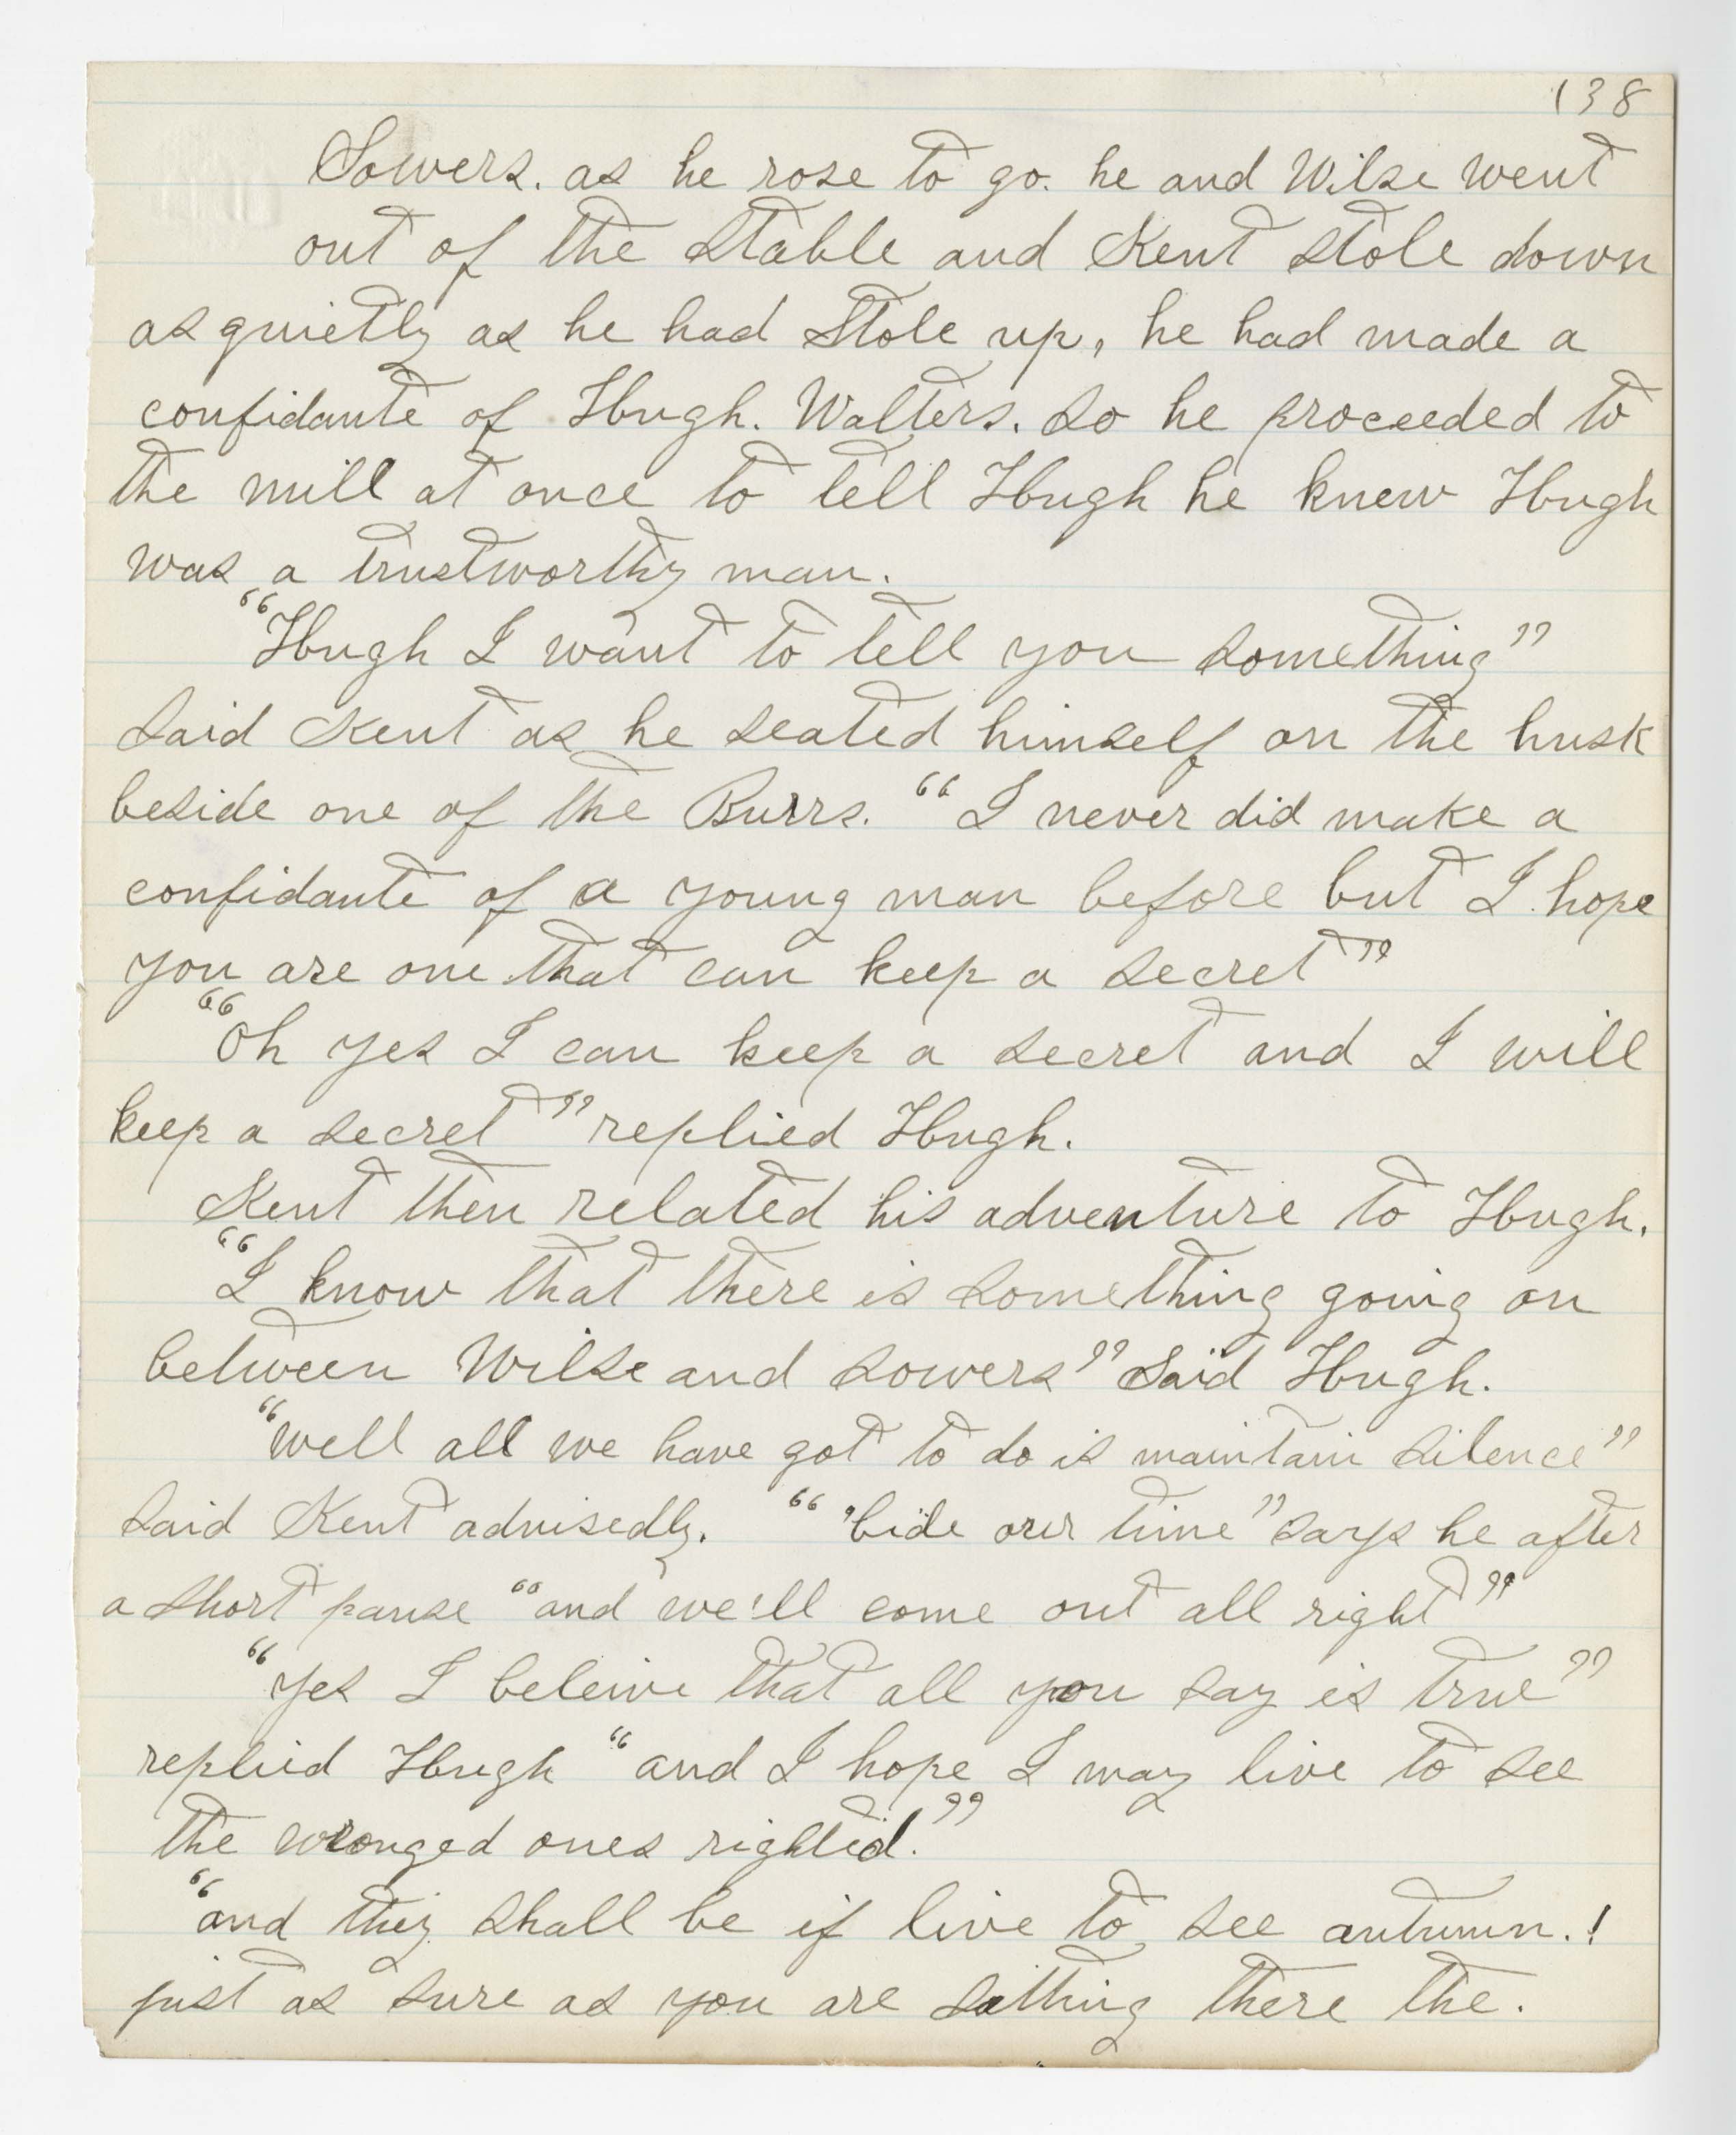 138
Sowers. as he rose to go. he and Wilse went
out of the stable and Kent stole down
as quietly as he had stole up, he had made a
confidante of Hugh. Walters. so he proceeded to
the mill at once to tell Hugh he knew Hugh
was a trustworthy man.
"Hugh I want to tell you something"
said Kent as he seated himself on the husk
beside one of the Burrs. "I never did make a
confidante of a young man before but I hope
you are one that can keep a secret"
"Oh yes I can keep a secret and I will
keep a secret" replied Hugh.
Kent then related his adventure to Hugh.
"I know that there is something going on
between Wilse and Sowers" said Hugh.
"well all we have got to do is maintain silence"
said Kent advisedly. "bide our time" says he after
a short pause "and we'll come out all right"
"yes I beleive that all you say is true"
replied Hugh "and I hope I may live to see
the wronged ones righted."
"and they shall be if live to see autumn.!
just as sure as you are sitting there the.